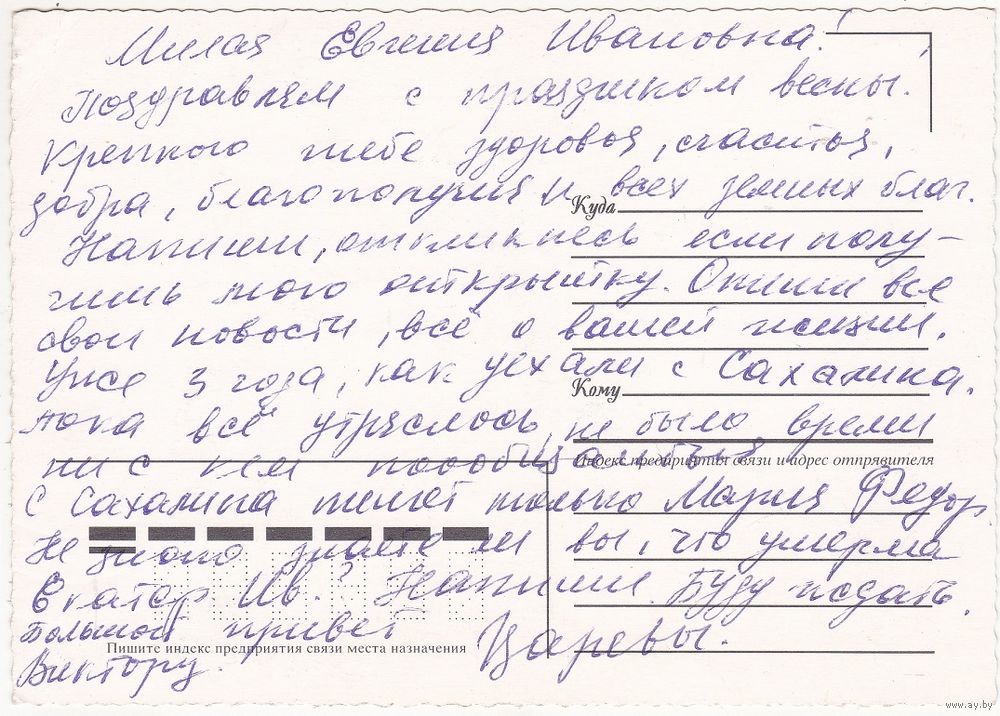 Милая Евгения Ивановна!
Поздравляем с праздником весны.
Крепкого тебе здоровья, счастья,
добра, благополучия и всех земных благ.
Куда
Напиши, откликнись если полу-
чишь мою открытку. Опиши все
свои новости, всё о вашей жизни.
Уже 3 года, как уехали с Сахалина.
Кому
пока всё утряслось, не было времени
ни с кем пообщаться
Индекс предприятия связи и адрес отправителя
С Сахалина пишет только Мария Федор.
Не знаю знаете ли вы, что умерла
Екатер Ив? Напиши. Буду ждать.
Большой привет Царевы.
Пишите индекс предприятия связи места назначения
Виктору.
www.ay.by